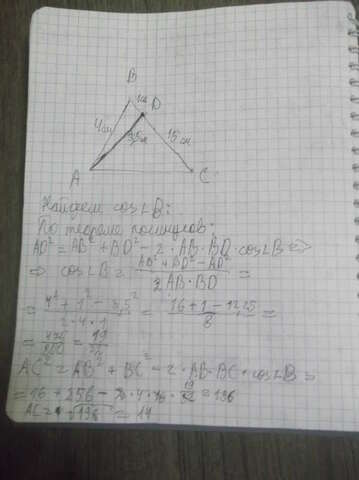 B
1см D
4см 3,5см 15см
A C
Найдем cos∠B:
По теореме косинусов:
AD² = AB² + BD² - 2 · AB · BD · cos∠B ⇒
⇒ cos∠B = (AB² + BD² - AD²) / (2AB · BD) =
= (4² + 1² - 3,5²) / (2 · 4 · 1) = (16 + 1 - 12,25) / 8 =
= 19
AC² = AB² + BC² - 2 · AB · BC · cos∠B =
= 16 + 256 - · 4 · 16 · 19/32 = 196
AC = √196 = 14